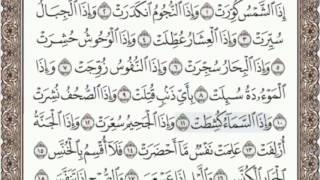 إِذَا ٱلشَّمْسُ كُوِّرَتْ ١ وَإِذَا ٱلنُّجُومُ ٱنكَدَرَتْ ٢ وَإِذَا ٱلْجِبَالُ
سُيِّرَتْ ٣ وَإِذَا ٱلْعِشَارُ عُطِّلَتْ ٤ وَإِذَا ٱلْوُحُوشُ حُشِرَتْ
٥ وَإِذَا ٱلْبِحَارُ سُجِّرَتْ ٦ وَإِذَا ٱلنُّفُوسُ زُوِّجَتْ ٧ وَإِذَا
ٱلْمَوْءُۥدَةُ سُئِلَتْ ٨ بِأَىِّ ذَنۢبٍ قُتِلَتْ ٩ وَإِذَا ٱلصُّحُفُ نُشِرَتْ
١٠ وَإِذَا ٱلسَّمَآءُ كُشِطَتْ ١١ وَإِذَا ٱلْجَحِيمُ سُعِّرَتْ ١٢ وَإِذَا ٱلْجَنَّةُ
أُزْلِفَتْ ١٣ عَلِمَتْ نَفْسٌ مَّآ أَحْضَرَتْ ١٤ فَلَآ أُقْسِمُ بِٱلْخُنَّسِ ١٥
ٱلْجَوَارِ ٱلْكُنَّسِ ١٦